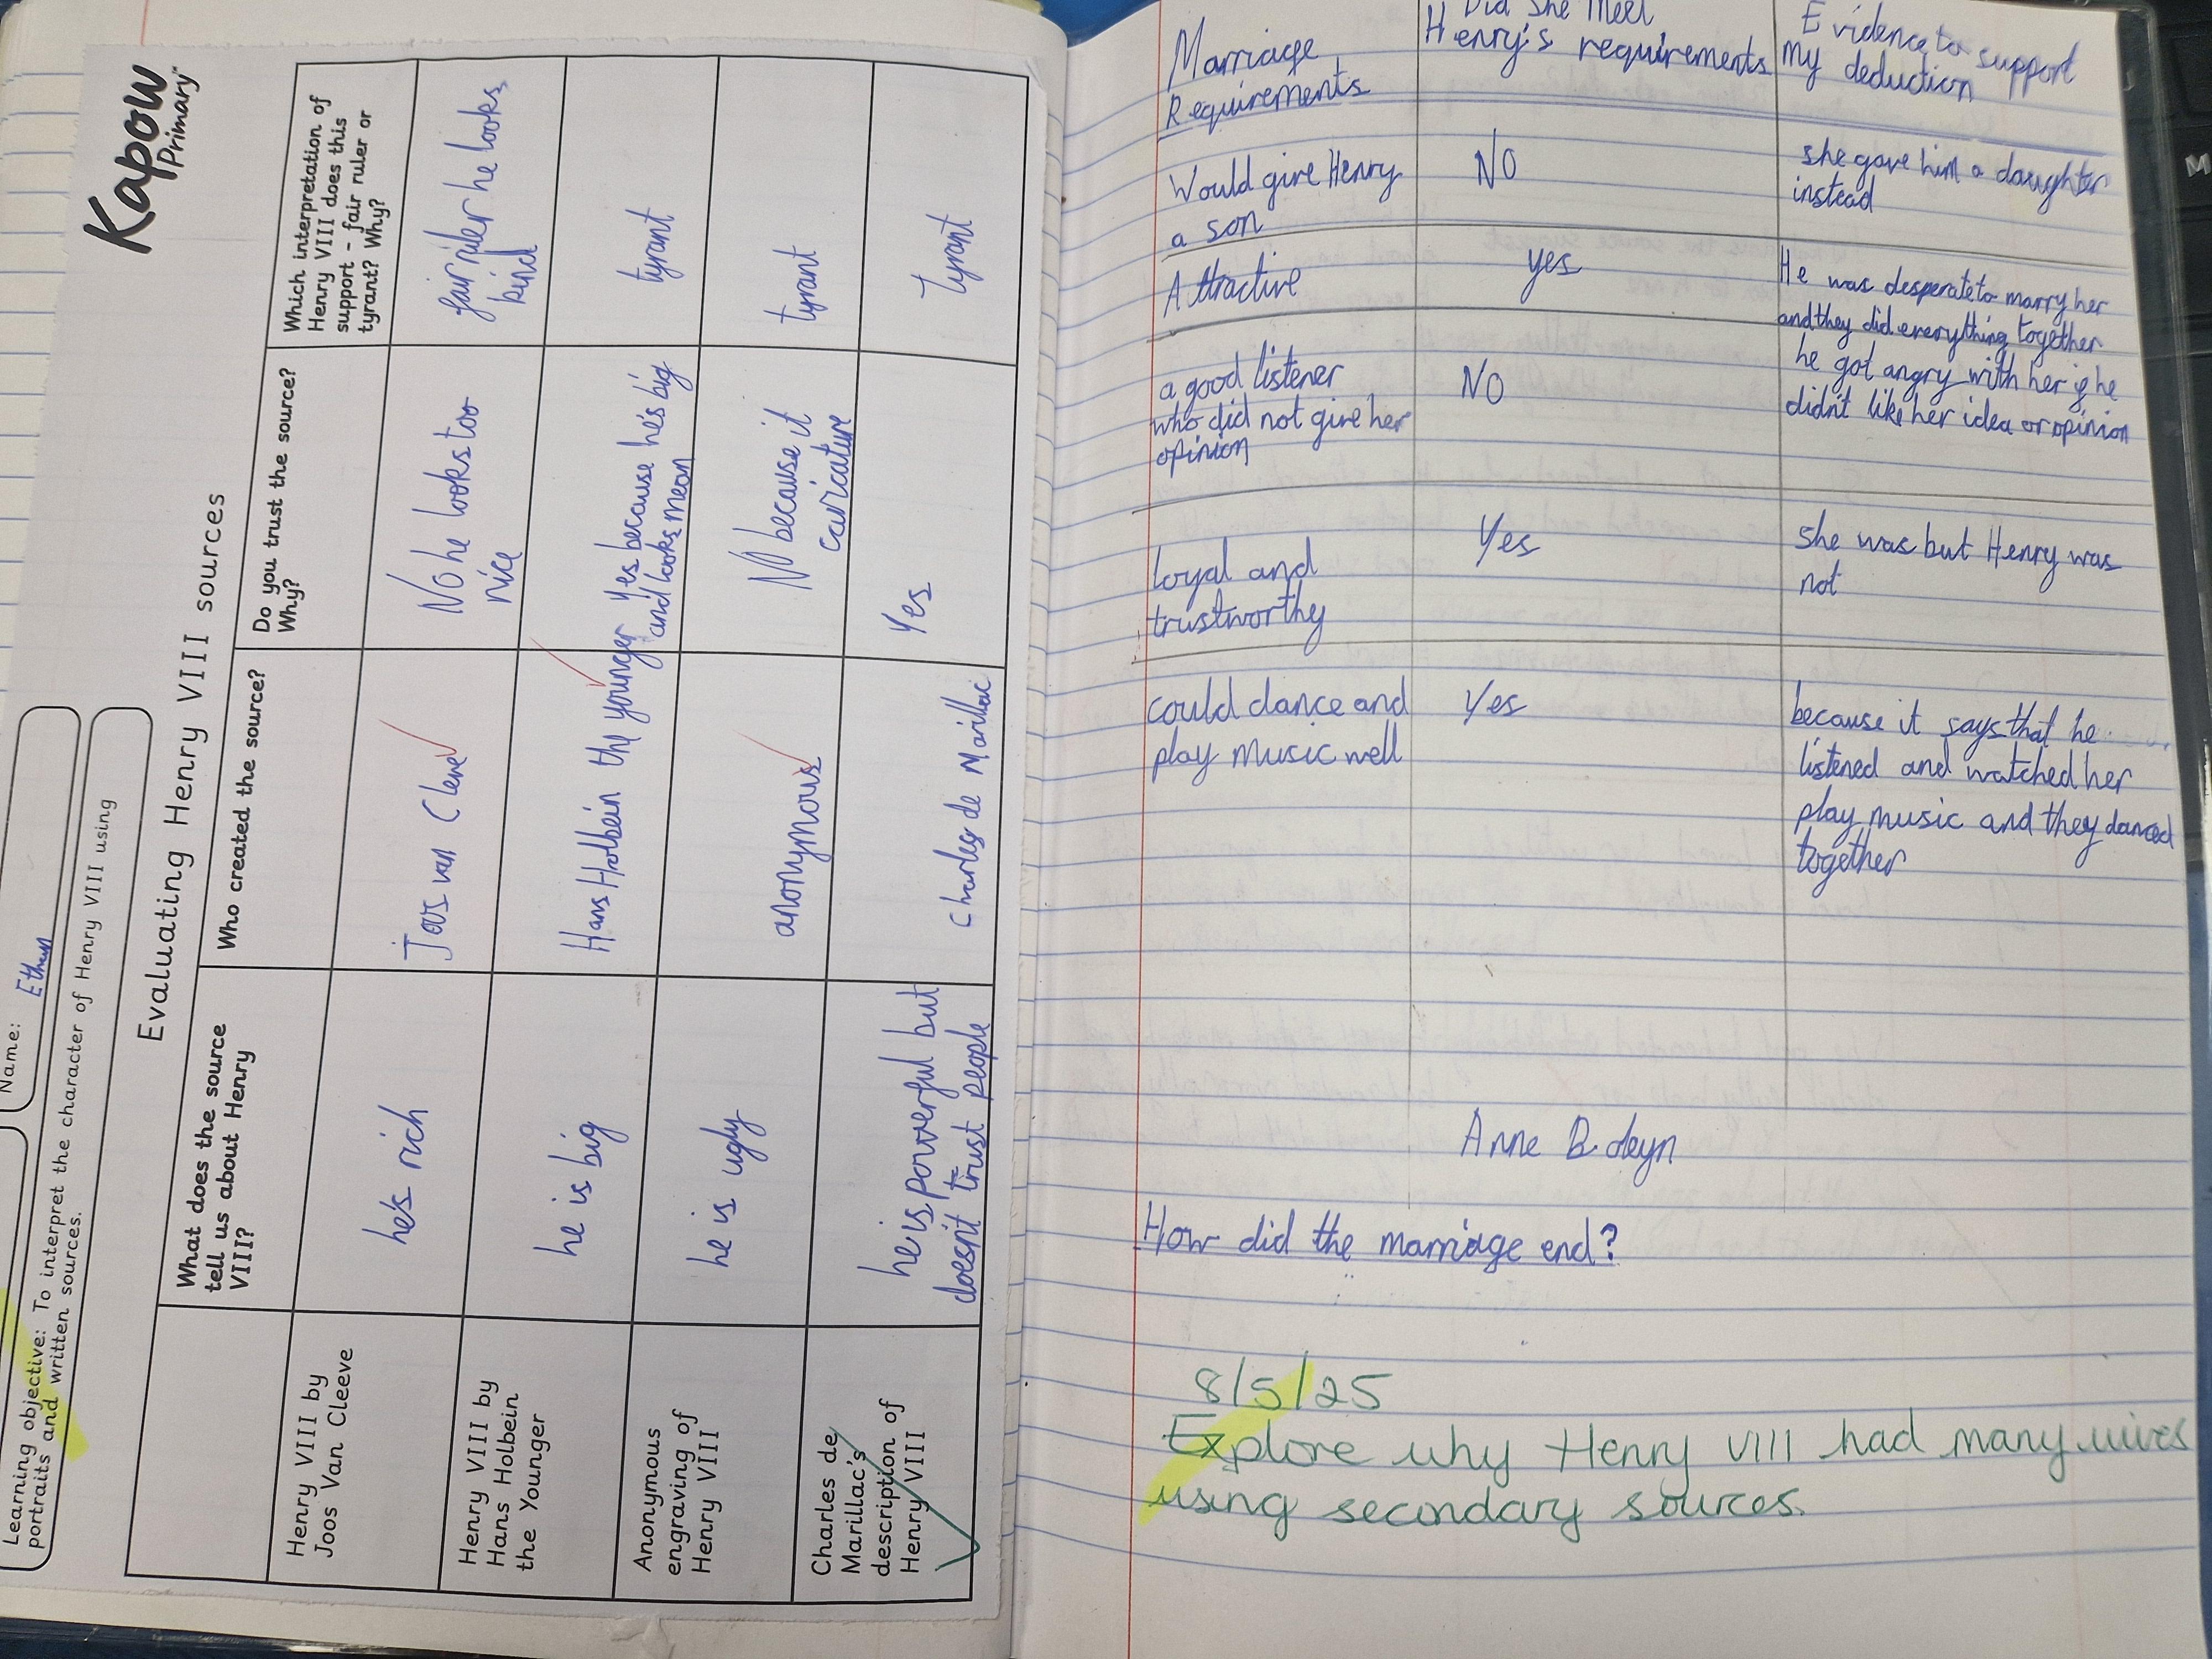 Kapow
Primary
Name: Ethan
Learning objective: To interpret the character of Henry VIII using
portraits and written sources.
Evaluating Henry VIII sources
What does the source
tell us about Henry
VIII?
Who created the source?
Do you trust the source?
Why?
Which interpretation of
Henry VIII does this
support - fair ruler or
tyrant? Why?
Henry VIII by
Joos Van Cleeve
he's rich
Joos van Cleve
No he looks too
nice
fair ruler he looks
kind
Henry VIII by
Hans Holbein
the Younger
he is big
Hans Holbein the younger
Yes because he's big
and looks mean
tyrant
Anonymous
engraving of
Henry VIII
he is ugly
anonymous
NO because it
caricature
tyrant
Charles de
Marillac's
description of
Henry VIII
he is powerful but
doesn't trust people
Charles de Marillac
Yes
tyrant
Marriage
Requirements
Did she meet
Henry's requirements
Evidence to support
my deduction
Would give Henry
a son
NO
she gave him a daughter
instead
Attractive
yes
He was desperate to marry her
and they did everything together
a good listener
who did not give her
opinion
NO
he got angry with her if he
didn't like her idea or opinion
loyal and
trustworthy
Yes
she was but Henry was
not
could dance and
play music well
Yes
because it says that he
listened and watched her
play music and they danced
together
Anne Boleyn
How did the marriage end?
8/5/25
Explore why Henry VIII had many wives
using secondary sources.